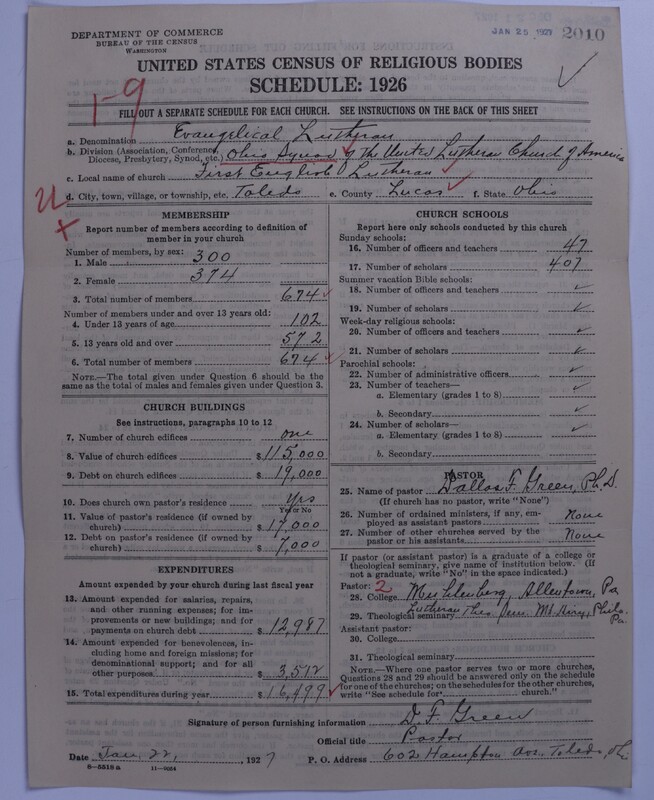 DEPARTMENT OF COMMERCE
BUREAU OF THE CENSUS
WASHINGTON
JAN 25 1927 2010
UNITED STATES CENSUS OF RELIGIOUS BODIES
SCHEDULE: 1926
1-9
FILL OUT A SEPARATE SCHEDULE FOR EACH CHURCH. SEE INSTRUCTIONS ON THE BACK OF THIS SHEET
a. Denomination Evangelical Lutheran
b. Division (Association, Conference, Diocese, Presbytery, Synod, etc.) Ohio Synod of the United Lutheran Church of America
c. Local name of church First English Lutheran
d. City, town, village, or township, etc. Toledo e. County Lucas f. State Ohio
MEMBERSHIP
Report number of members according to definition of
member in your church
Number of members, by sex:
1. Male 300
2. Female 374
3. Total number of members 674
Number of members under and over 13 years old:
4. Under 13 years of age 102
5. 13 years old and over 572
6. Total number of members 674
NOTE.—The total given under Question 6 should be
same as the total of males and females given under Question 3.
CHURCH BUILDINGS
See instructions, paragraphs 10 to 12
7. Number of church edifices one
8. Value of church edifices $ 115,000
9. Debt on church edifices $ 19,000
10. Does church own pastor's residence Yes
Yes or No
11. Value of pastor's residence (if owned by
church) $ 17,000
12. Debt on pastor's residence (if owned by
church) $ 7,000
EXPENDITURES
Amount expended by your church during last fiscal year
13. Amount expended for salaries, repairs,
and other running expenses; for im-
provements or new buildings; and for
payments on church debt $ 12,987
14. Amount expended for benevolences, in-
cluding home and foreign missions; for
denominational support; and for all
other purposes $ 3,512
15. Total expenditures during year $ 16,499
CHURCH SCHOOLS
Report here only schools conducted by this church
Sunday schools:
16. Number of officers and teachers 47
17. Number of scholars 407
Summer vacation Bible schools:
18. Number of officers and teachers
19. Number of scholars
Week-day religious schools:
20. Number of officers and teachers
21. Number of scholars
Parochial schools:
22. Number of administrative officers
23. Number of teachers—
a. Elementary (grades 1 to 8)
b. Secondary
24. Number of scholars—
a. Elementary (grades 1 to 8)
b. Secondary
PASTOR
25. Name of pastor Dallas F. Green, Ph.D.
(If church has no pastor, write "None")
26. Number of ordained ministers, if any, em-
ployed as assistant pastors None
27. Number of other churches served by the
pastor or his assistants None
If pastor (or assistant pastor) is a graduate of a college or
theological seminary, give name of institution below. (If
not a graduate, write "No" in the space indicated.)
Pastor: 2
28. College Muhlenberg, Allentown, Pa
29. Theological seminary Lutheran Theo. Sem. Mt Airy, Phila. Pa.
Assistant pastor:
30. College
31. Theological seminary
NOTE.—Where one pastor serves two or more churches,
Questions 28 and 29 should be answered only on the schedule
for one of the churches; on the schedules for the other churches,
write "See schedule for church."
Signature of person furnishing information D. F. Green
Official title Pastor
Date Jan. 22, 1927 P. O. Address 602 Hampton Ave. Toledo,
8-5518 a